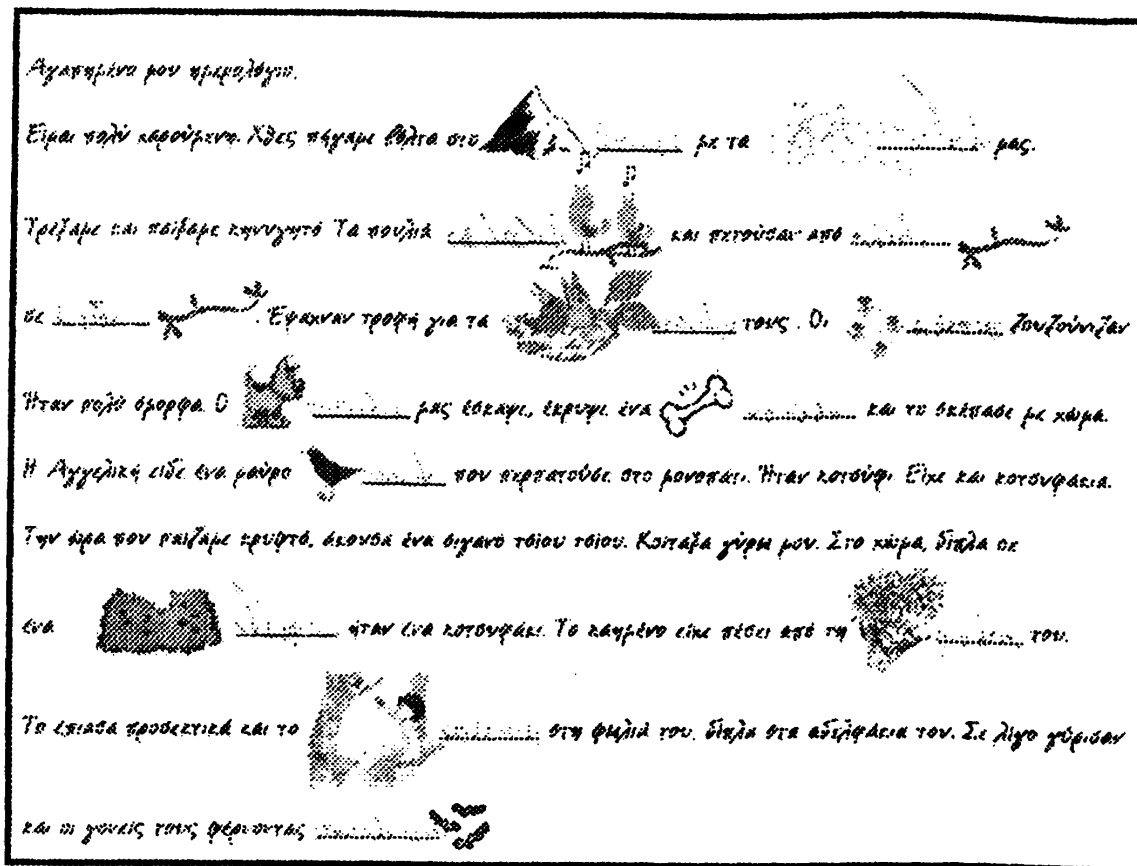 Αγαπημένο μου ημερολόγιο,
Είμαι πολύ χαρούμενη. Χθες πήγαμε βόλτα στο με τα μας.
Τρέξαμε και παίξαμε κυνηγητό. Τα πουλιά και πετούσαν από
σε . Έψαχναν τροφή για τα τους. Οι ζουζούνιζαν
Ήταν πολύ όμορφα. Ο μας έσκαψε, έκρυψε ένα και το σκέπασε με χώμα.
Η Αγγελική είδε ένα μαύρο που περπατούσε στο μονοπάτι. Ήταν κοτσύφι. Είχε και κοτσυφάκια.
Την ώρα που παίζαμε κρυφτό, άκουσα ένα σιγανό τσίου τσίου. Κοίταξα γύρω μου. Στο χώμα, δίπλα σε
ένα ήταν ένα κοτσυφάκι. Το καημένο είχε πέσει από τη του.
Το έπιασα προσεκτικά και το στη φωλιά του, δίπλα στα αδελφάκια του. Σε λίγο γύρισαν
και οι γονείς τους φέρνοντας